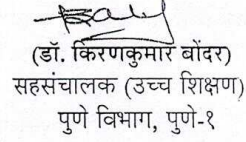 (डॉ. किरणकुमार बोंदर)
सहसंचालक (उच्च शिक्षण)
पुणे विभाग, पुणे-१